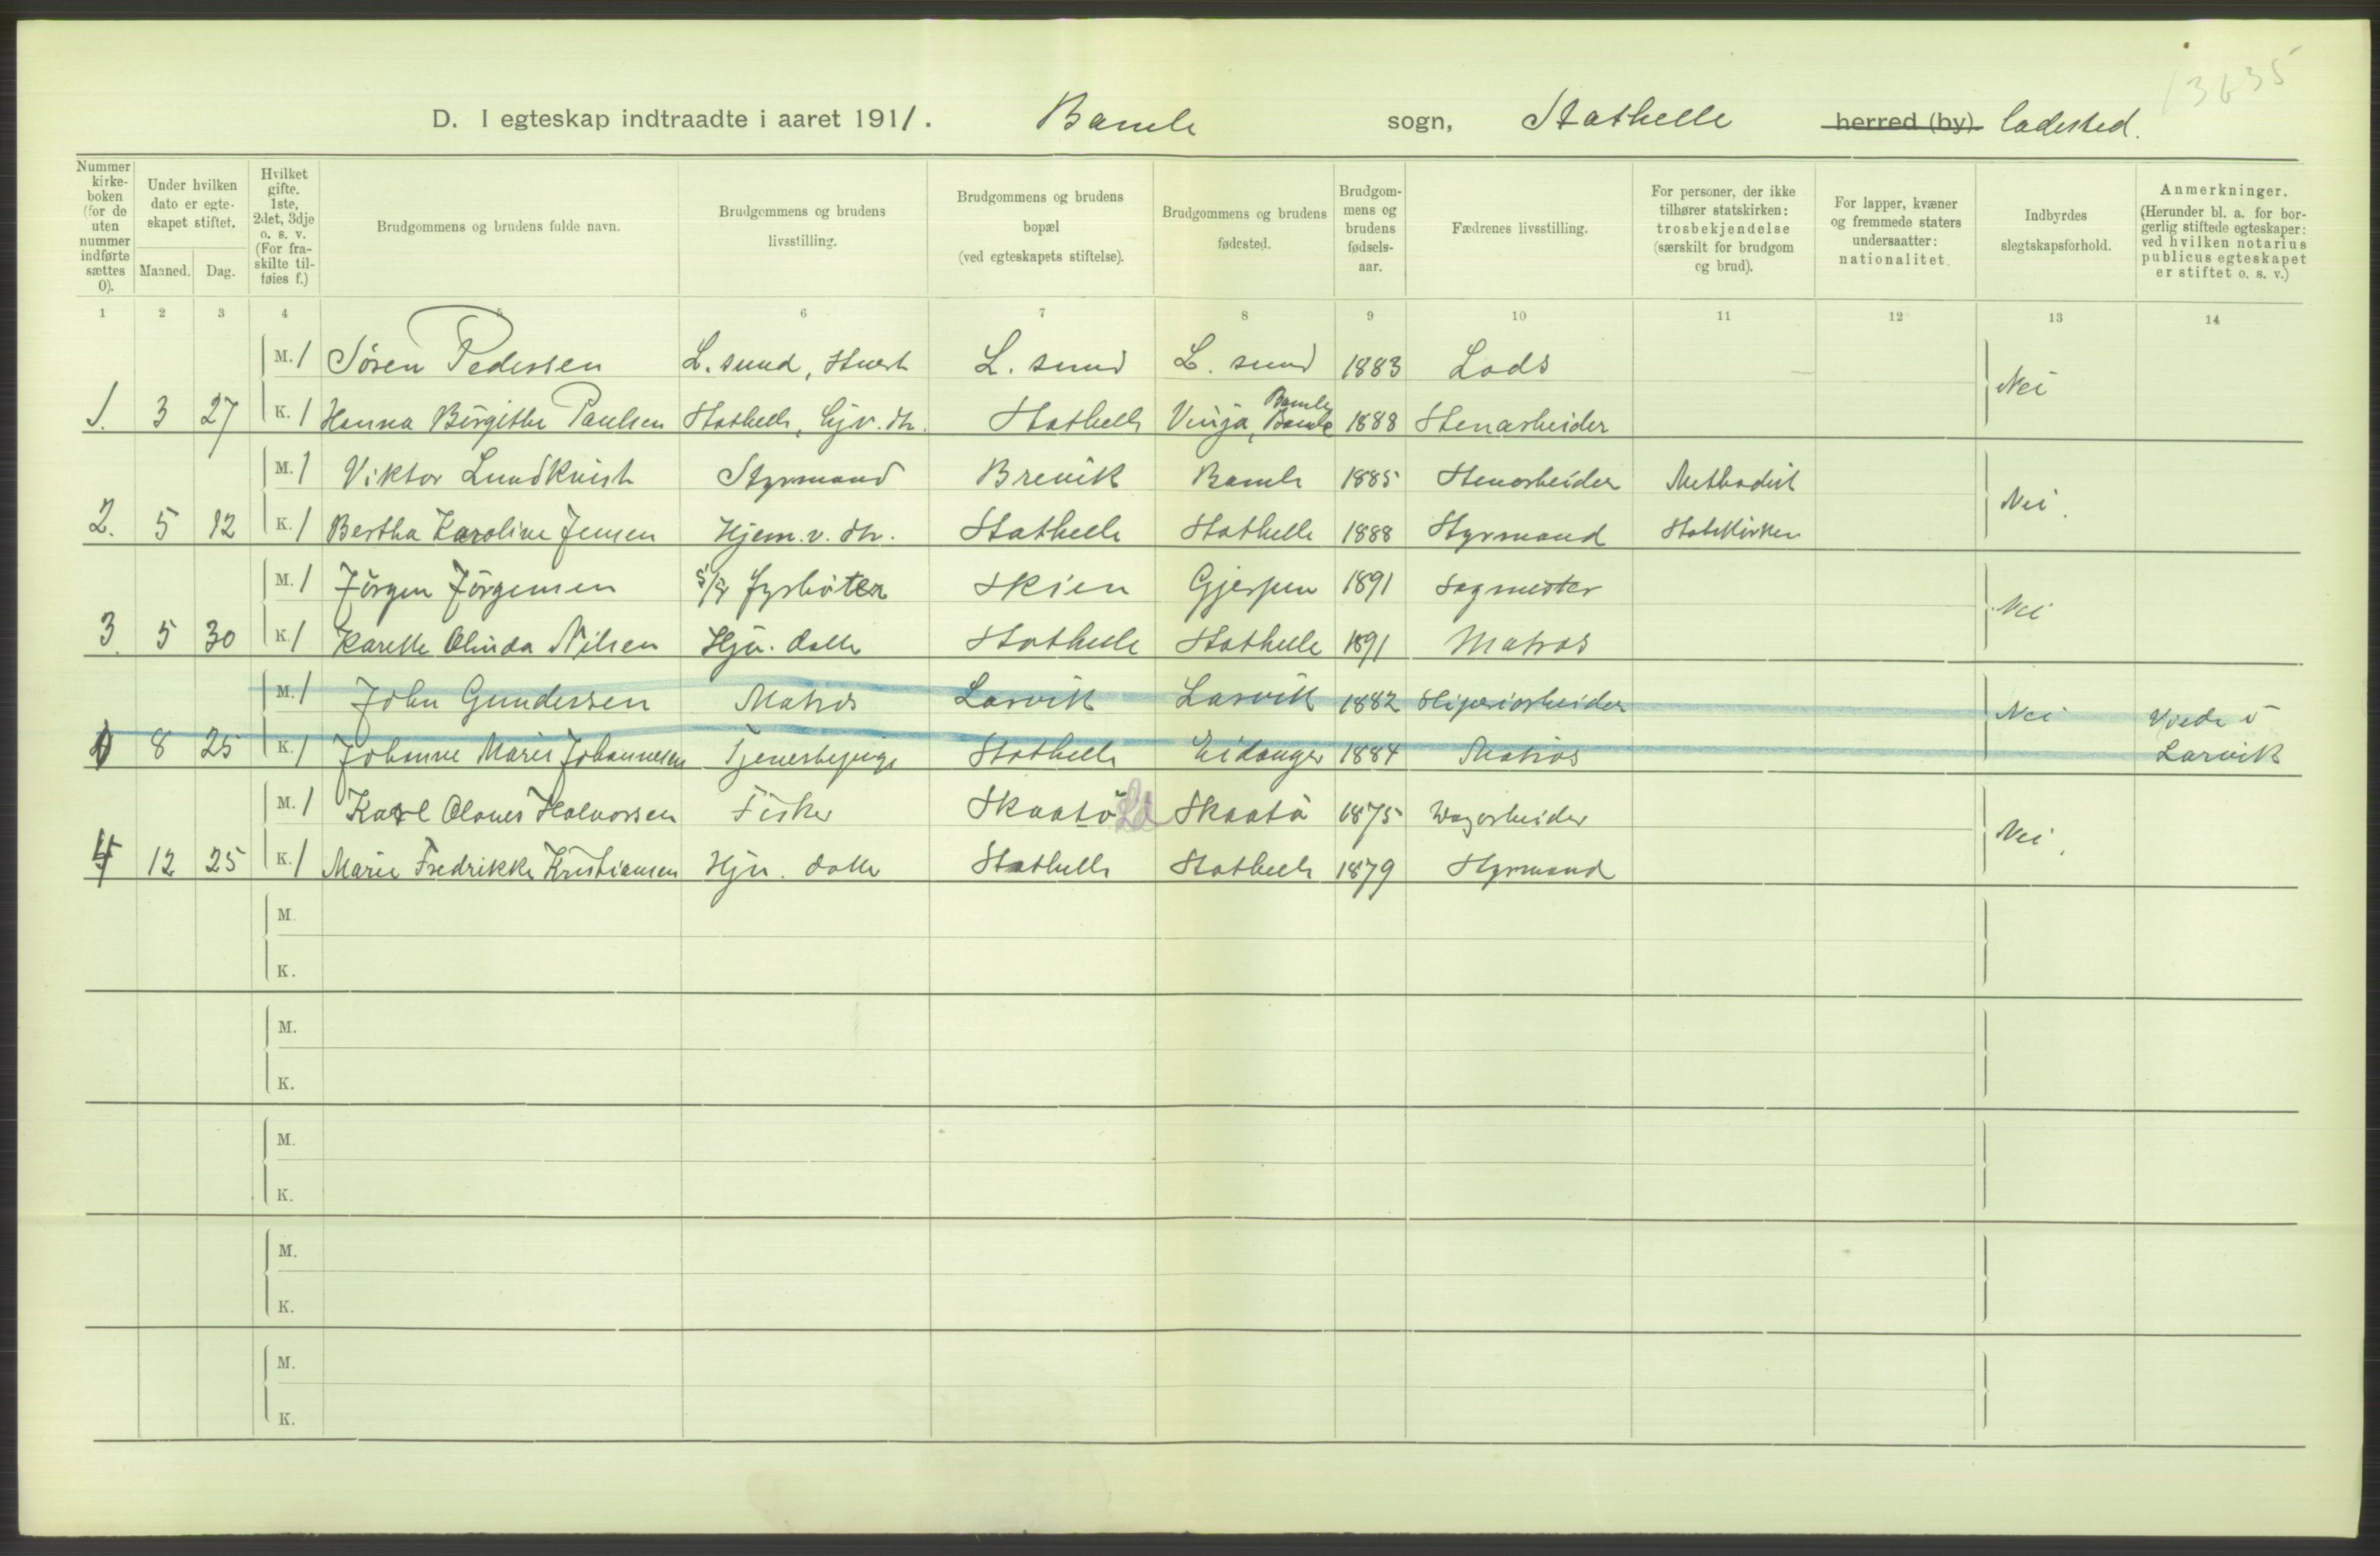 13635
D. I egteskap indtraadte i aaret 1911. Bamle sogn, Stathelle herred (by) ladested.
Nummer kirke-boken (for de uten nummer indførte sættes 0).
Under hvilken dato er egte-skapet stiftet.
Maaned. Dag.
Hvilket gifte. 1ste, 2det, 3dje o. s. v. (For fra-skilte til-føies f.)
Brudgommens og brudens fulde navn.
Brudgommens og brudens livsstilling.
Brudgommens og brudens bopæl (ved egteskapets stiftelse).
Brudgommens og brudens fødested.
Brudgom-mens og brudens fødsels-aar.
Fædrenes livsstilling.
For personer, der ikke tilhører statskirken: trosbekjendelse (særskilt for brudgom og brud).
For lapper, kvæner og fremmede staters undersaatter: nationalitet.
Indbyrdes slegtskapsforhold.
Anmerkninger. (Herunder bl. a. for bor-gerlig stiftede egteskaper: ved hvilken notarius publicus egteskapet er stiftet o. s. v.)
1 2 3 4 5 6 7 8 9 10 11 12 13 14
M. 1 Søren Pedersen L. sund, Stuert L. sund L. sund 1883 Lods Nei
Bamle
1. 3 27 K. 1 Hanna Birgithe Paulsen Stathelle, hj. v. str. Stathelle Vinja, Bamle 1888 Stenarbeider
M. 1 Viktor Lundkvist Styrmand Brevik Bamle 1885 Stenarbeider Methodist Nei.
2. 5 12 K. 1 Bertha Karoline Jensen Hjem. v. str. Stathelle Stathelle 1888 Styrmand Statskirken
M. 1 Jörgen Jörgensen S/S fyrböter Skien Gjerpen 1891 Sagmester Nei
3. 5 30 K. 1 Karelle Olinda Nilsen Hjv. datter Stathelle Stathelle 1891 Matros
M. 1 John Gundersen Matros Larvik Larvik 1882 Sliperiarbeider Nei Viede i
0 8 25 K. 1 Johanne Marie Johannesen Tjenestepige Stathelle Eidanger 1884 Matros Larvik
M. 1 Karl Olaves Halvorsen Fisker Skaatö Ld Skaatö 1875 Vagarbeider Nei.
4 12 25 K. 1 Marie Fredrikke Kristiansen Hjv. datter Stathelle Stathelle 1879 Styrmand
M.
K.
M.
K.
M.
K.
M.
K.
M.
K.